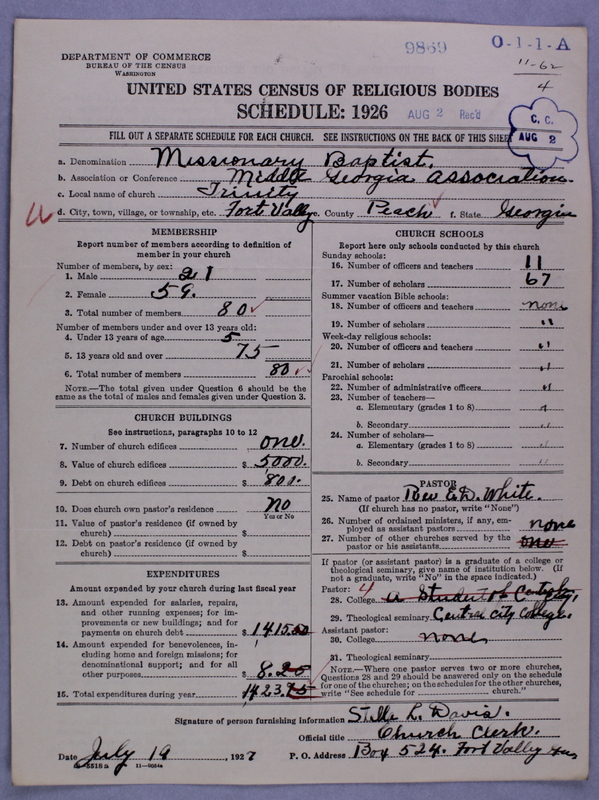 9869
O-1-1-A
11-62
4
DEPARTMENT OF COMMERCE
BUREAU OF THE CENSUS
WASHINGTON
UNITED STATES CENSUS OF RELIGIOUS BODIES
SCHEDULE: 1926
AUG 2 Rec'd
C. C.
AUG 2
FILL OUT A SEPARATE SCHEDULE FOR EACH CHURCH. SEE INSTRUCTIONS ON THE BACK OF THIS SHEET
a. Denomination Missionary Baptist.
b. Association or Conference Middle Georgia Association.
c. Local name of church Trinity
d. City, town, village, or township, etc. Fort Valley e. County Peach f. State Georgia
MEMBERSHIP
Report number of members according to definition of member in your church
Number of members, by sex:
1. Male 21
2. Female 59.
3. Total number of members 80
Number of members under and over 13 years old:
4. Under 13 years of age 5
5. 13 years old and over 75
6. Total number of members 80
NOTE.—The total given under Question 6 should be the same as the total of males and females given under Question 3.
CHURCH BUILDINGS
See instructions, paragraphs 10 to 12
7. Number of church edifices one.
8. Value of church edifices $ 5000.
9. Debt on church edifices $ 800.
10. Does church own pastor's residence? No
Yes or No
11. Value of pastor's residence (if owned by church) $
12. Debt on pastor's residence (if owned by church) $
EXPENDITURES
Amount expended by your church during last fiscal year
13. Amount expended for salaries, repairs, and other running expenses; for improvements or new buildings; and for payments on church debt $ 1415.00
14. Amount expended for benevolences, including home and foreign missions; for denominational support; and for all other purposes $ 8.25
15. Total expenditures during year 1423.25
CHURCH SCHOOLS
Report here only schools conducted by this church
Sunday schools:
16. Number of officers and teachers 11
17. Number of scholars 67
Summer vacation Bible schools:
18. Number of officers and teachers none
19. Number of scholars "
Week-day religious schools:
20. Number of officers and teachers "
21. Number of scholars "
Parochial schools:
22. Number of administrative officers "
23. Number of teachers—
a. Elementary (grades 1 to 8) "
b. Secondary "
24. Number of scholars—
a. Elementary (grades 1 to 8) "
b. Secondary "
PASTOR
25. Name of pastor Rev E.D. White.
(If church has no pastor, write "None")
26. Number of ordained ministers, if any, employed as assistant pastors none
27. Number of other churches served by the pastor or his assistants one
If pastor (or assistant pastor) is a graduate of a college or theological seminary, give name of institution below. (If not a graduate, write "No" in the space indicated.)
Pastor:
28. College a Student of Centry City
29. Theological seminary Central City College.
Assistant pastor:
30. College none
31. Theological seminary
NOTE.—Where one pastor serves two or more churches, Questions 28 and 29 should be answered only on the schedule for one of the churches; on the schedules for the other churches, write "See schedule for church."
Signature of person furnishing information L. Davis.
Official title Church Clerk.
Date July 19, 1927 P. O. Address Box 524. Fort Valley
11—9034a